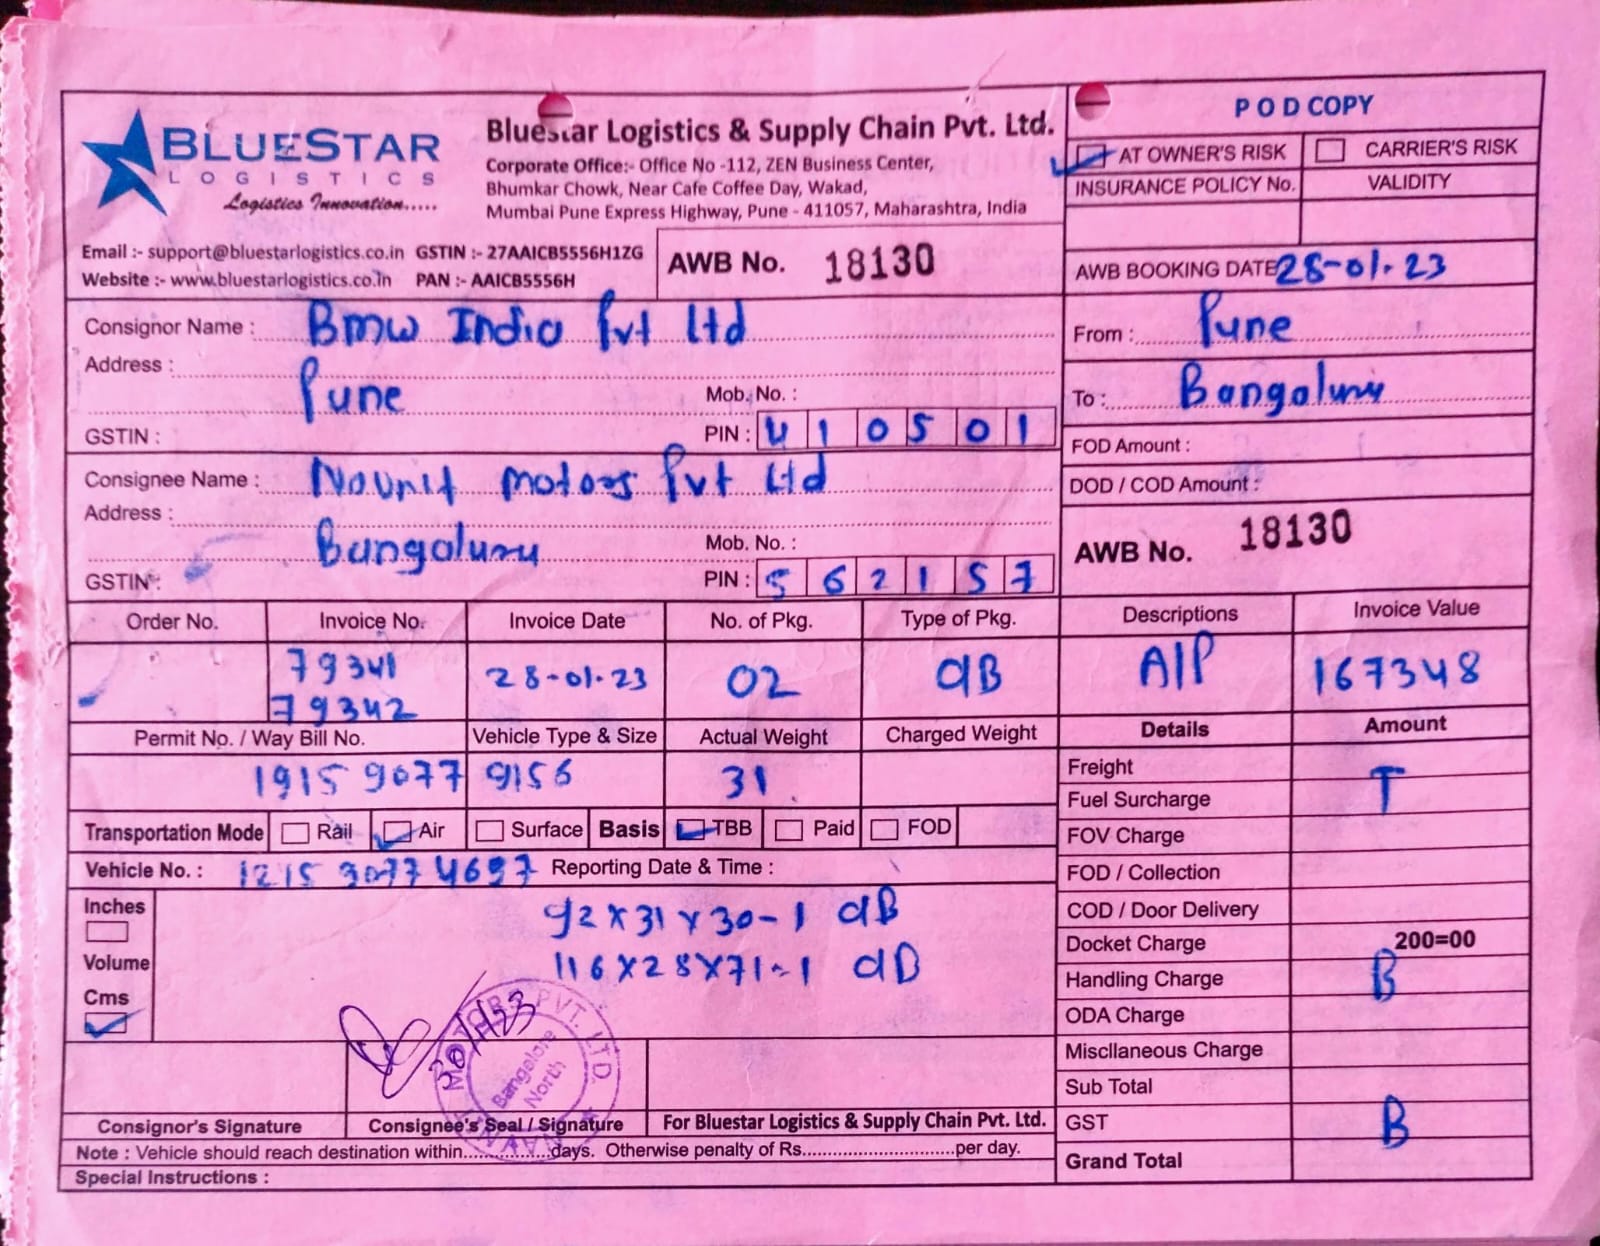 BLUESTAR
LOGISTICS
Logistics Innovation.....
Bluestar Logistics & Supply Chain Pvt. Ltd.
Corporate Office:- Office No -112, ZEN Business Center,
Bhumkar Chowk, Near Cafe Coffee Day, Wakad,
Mumbai Pune Express Highway, Pune - 411057, Maharashtra, India
Email :- support@bluestarlogistics.co.in GSTIN :- 27AAICB5556H1ZG
Website :- www.bluestarlogistics.co.in PAN :- AAICB5556H
AWB No. 18130
POD COPY
AT OWNER'S RISK CARRIER'S RISK
INSURANCE POLICY No. VALIDITY
AWB BOOKING DATE 28-01-23
Consignor Name : Bmw India Pvt Ltd
Address :
Pune
Mob. No. :
GSTIN :
PIN : 410501
From : Pune
To : Bangaluru
FOD Amount :
DOD / COD Amount :
AWB No. 18130
Consignee Name : Navnit motors Pvt Ltd
Address :
Bangaluru
Mob. No. :
GSTIN :
PIN : 562157
Order No. Invoice No. Invoice Date No. of Pkg. Type of Pkg. Descriptions Invoice Value
79341 28-01-23 02 CB A/P 167348
79342
Permit No. / Way Bill No. Vehicle Type & Size Actual Weight Charged Weight Details Amount
1915 9077 9156 31
Freight
Fuel Surcharge T
FOV Charge
FOD / Collection
COD / Door Delivery
Docket Charge 200=00
Handling Charge B
ODA Charge
Miscllaneous Charge
Sub Total
GST B
Grand Total
Transportation Mode Rail Air Surface Basis TBB Paid FOD
Vehicle No. : 1215 9077 4697 Reporting Date & Time :
Inches
Volume
Cms
92x31x30-1 CB
116x28x71-1 CB
30/1/23
MOTORS PVT. LTD.
Bangalore
North
Consignor's Signature Consignee's Seal / Signature For Bluestar Logistics & Supply Chain Pvt. Ltd.
Note : Vehicle should reach destination within...............days. Otherwise penalty of Rs...........................per day.
Special Instructions :